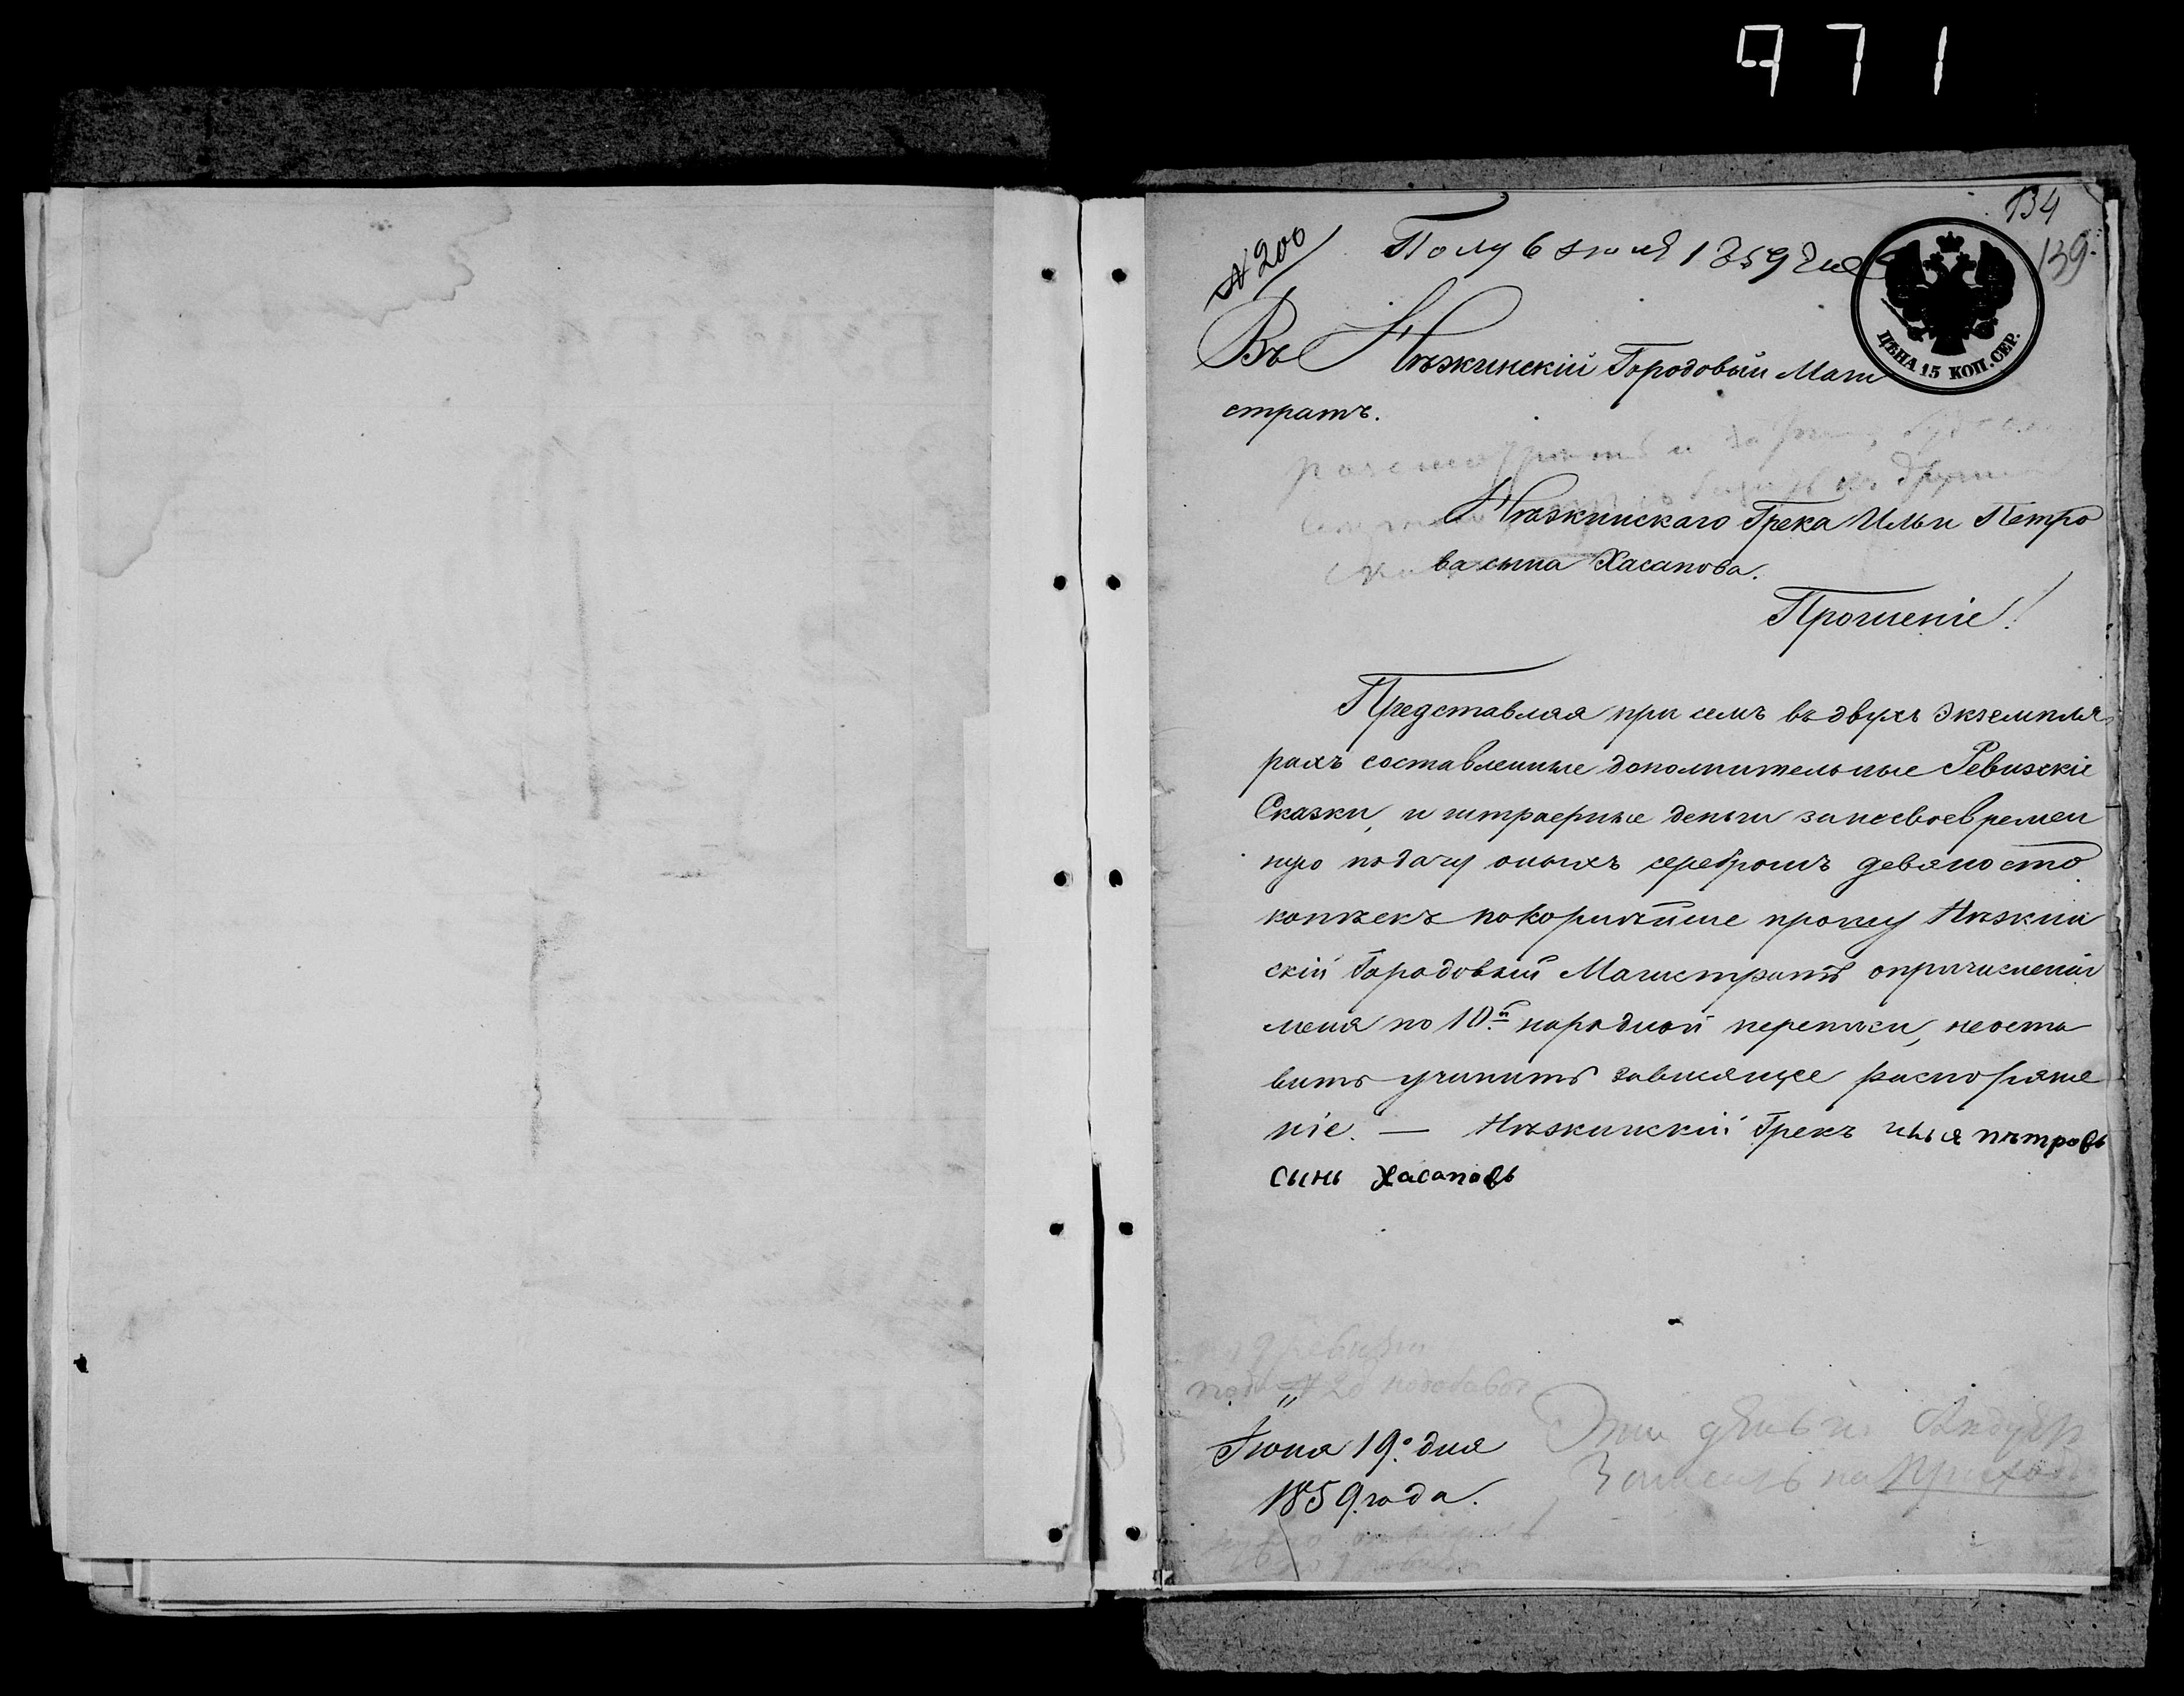 971
134
139.
№ 200
Полу 6 июля 1859 года
ЦѢНА 15 КОП. СЕР.
Въ Нѣжинскій Городовый Маги
стратъ.
разсмотрѣть и
Нѣжинскаго Грека Ильи Петро
ва сына Хасапова.
Прошеніе!
Представляя при семъ въ двухъ экземпля
рахъ составленные дополнительные Ревизскіе
Сказки, и штраерные деньги занесвоевремен
ную подачу оныхъ серебромъ девяносто
копѣекъ покорнѣйше прошу Нѣжин
скій Городовый Магистратъ опричисленіи
меня по 10й народной переписи, неоста
вить учинить зависящее распоряже
ніе. — Нѣжинскій Грекъ илья пѣтровь
сынь Хасаповь
9 ревизіи
подъ № 20
"
Іюня 19го дня
1859 года.
Эти деньги
Записать на приходъ